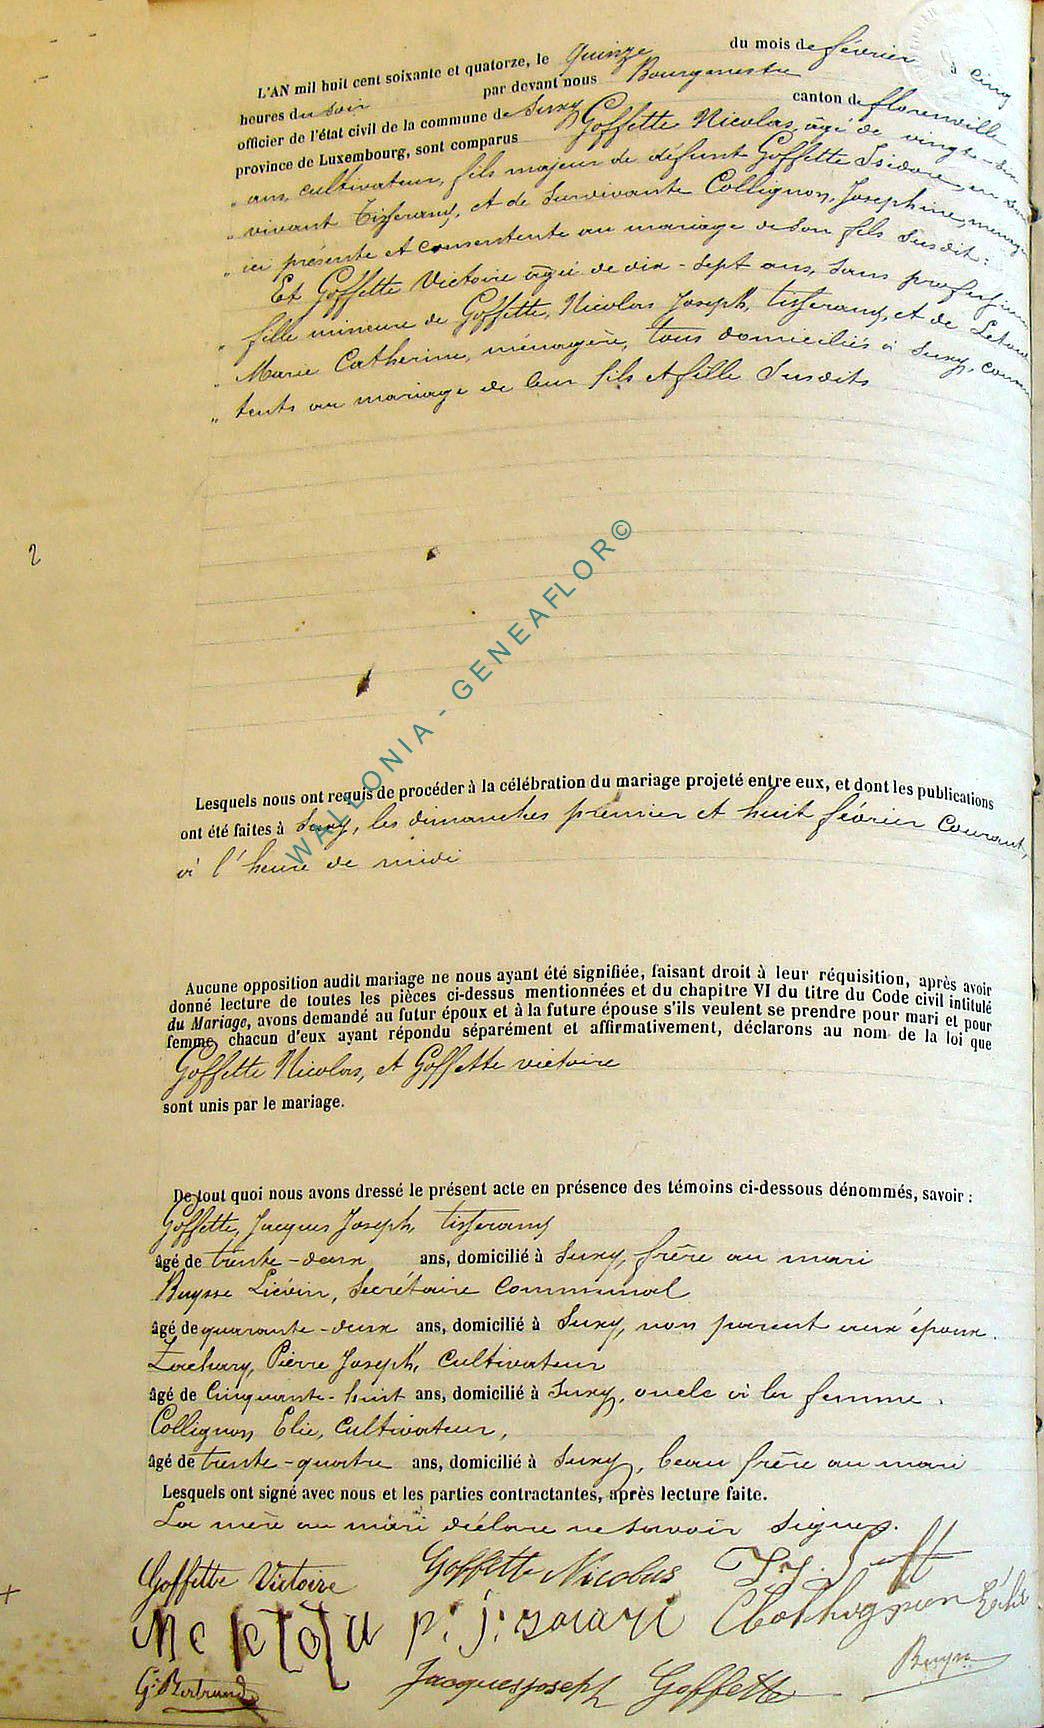 L'AN mil huit cent soixante et quatorze, le Quinze du mois de février à Cinq
heures du Soir par devant nous Bourgmestre
officier de l'état civil de la commune de Suxy canton de florenville
province de Luxembourg, sont comparus Goffette Nicolas, âgé de vingt-deux
ans, cultivateur, fils majeur de défunt Goffette Isidore, en son
vivant Tisserand, et de Survivante Collignon, Josephine, ménagère
ici présente et consentente au mariage de son fils Susdit:
Et Goffette Victoire âgée de dix-sept ans, sans profession
fille mineure de Goffette, Nicolas Joseph, tisserand, et de
Marie Catherine, ménagère, tous domiciliés à Suxy, consen
tents au mariage de leur fils et fille Susdits
2
WALLONIA - GENEAFLOR©
Lesquels nous ont requis de procéder à la célébration du mariage projeté entre eux, et dont les publications
ont été faites à Suxy, les dimanches premier et huit février Courant,
à l'heure de midi
Aucune opposition audit mariage ne nous ayant été signifiée, faisant droit à leur réquisition, après avoir
donné lecture de toutes les pièces ci-dessus mentionnées et du chapitre VI du titre du Code civil intitulé
du Mariage, avons demandé au futur époux et à la future épouse s'ils veulent se prendre pour mari et pour
femme, chacun d'eux ayant répondu séparément et affirmativement, déclarons au nom de la loi que
Goffette Nicolas, et Goffette victoire
sont unis par le mariage.
De tout quoi nous avons dressé le présent acte en présence des témoins ci-dessous dénommés, savoir :
Goffette, Jacques Joseph, tisserand
âgé de trente-deux ans, domicilié à Suxy, frère au mari
Buysse Liévin, Secrétaire Communal
âgé de quarante-deux ans, domicilié à Suxy, non parent aux époux.
Zachary, Pierre Joseph, Cultivateur
âgé de Cinquante-huit ans, domicilié à Suxy, oncle à la femme.
Collignon Elie, Cultivateur,
âgé de trente-quatre ans, domicilié à Suxy, beau frère au mari
Lesquels ont signé avec nous et les parties contractantes, après lecture faite.
La mère au mari déclare ne Savoir Signer.
Goffette Victoire Goffette Nicolas
p. j.
G. Bertrand Jacques joseph Goffette